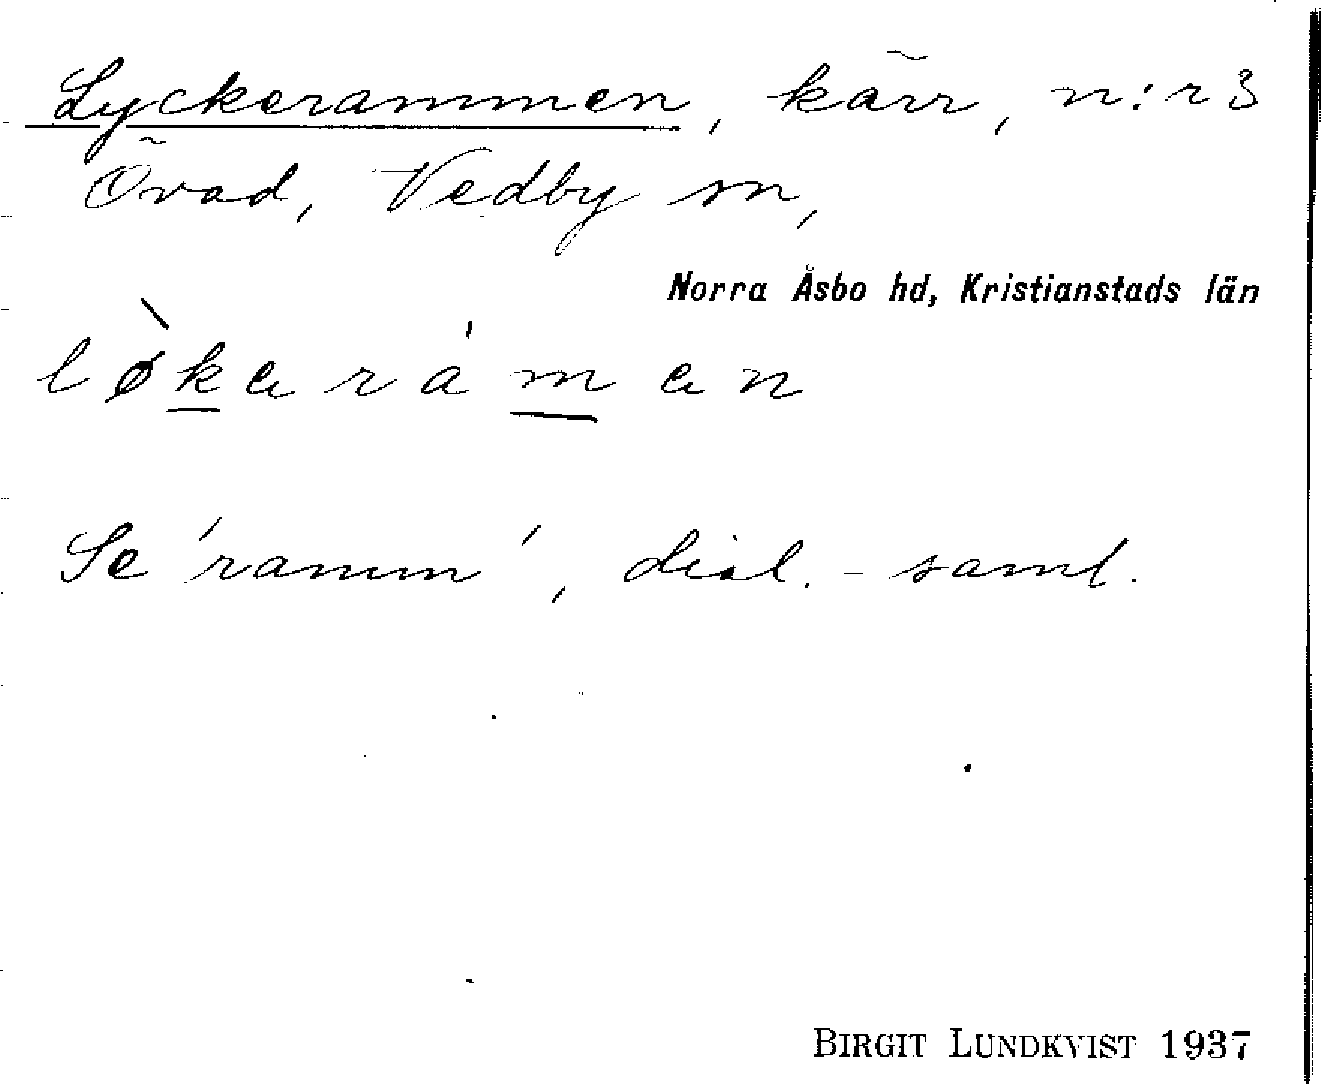 Lyckerammen, kärr, n:r 3
Övad, Vedby sn,
Norra Åsbo hd, Kristianstads län
lø̀kerámen
Se 'ramm', dial.-saml.
BIRGIT LUNDKVIST 1937